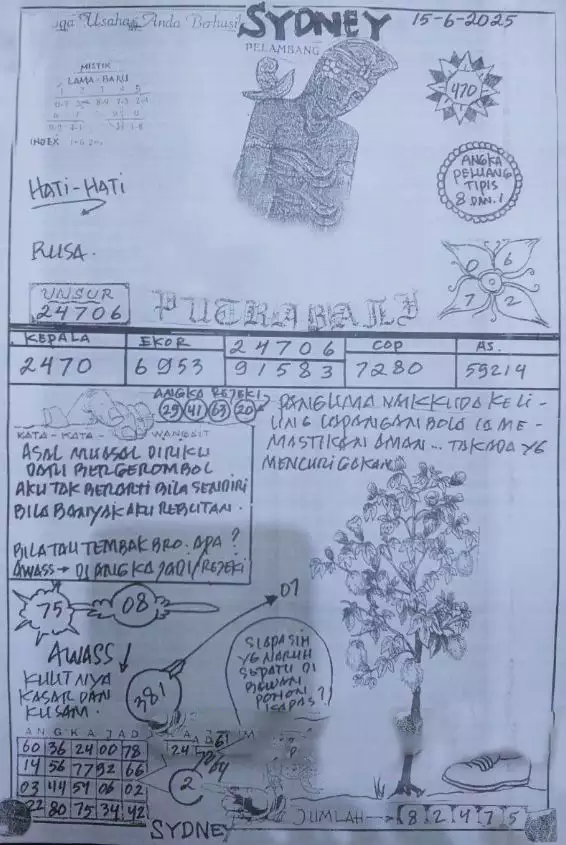 Usaha Anda Berhasil
SYDNEY
15-6-2025
PELAMBANG
MISTIK
LAMA-BARU
INDEX
470
ANGKA
PELUANG
TIPIS
8 DAN 1
HATI-HATI
RUSA.
0 6
7 2
UNSUR
24706
PUTRA BALI
KEPALA EKOR 24706 COP AS.
2470 6953 91583 7280 59214
ANGKA REJEKI
29 41 63 20
KATA-KATA WANGSIT
ASAL MUASAL DIRIKU
DARI BERGEROMBOL
AKU TAK BERARTI BILA SENDIRI
BILA BANYAK AKU REBUTAN.
BILA TAU TEMBAK BRO. APA?
AWASS → DI ANGKA JADI/REJEKI
PANGLIMA NAIK KUDA KELI-
LING LAPANGAN BOLA IA ME-
MASTIKAN AMAN... TAKADA YG
MENCURIGAKAN
75 08
07
381
AWASS
KULITNYA
KASAR DAN
KUSAM.
SIAPA SIH
YG NARUH
SEPATU DI
BAWAH
POHON
KAPAS?
ANGKA JADI
60 36 24 00 78
14 56 77 92 66
03 44 54 06 02
22 80 75 34 42
24
61
64
2
SYDNEY
JUMLAH → 8 2 4 7 5